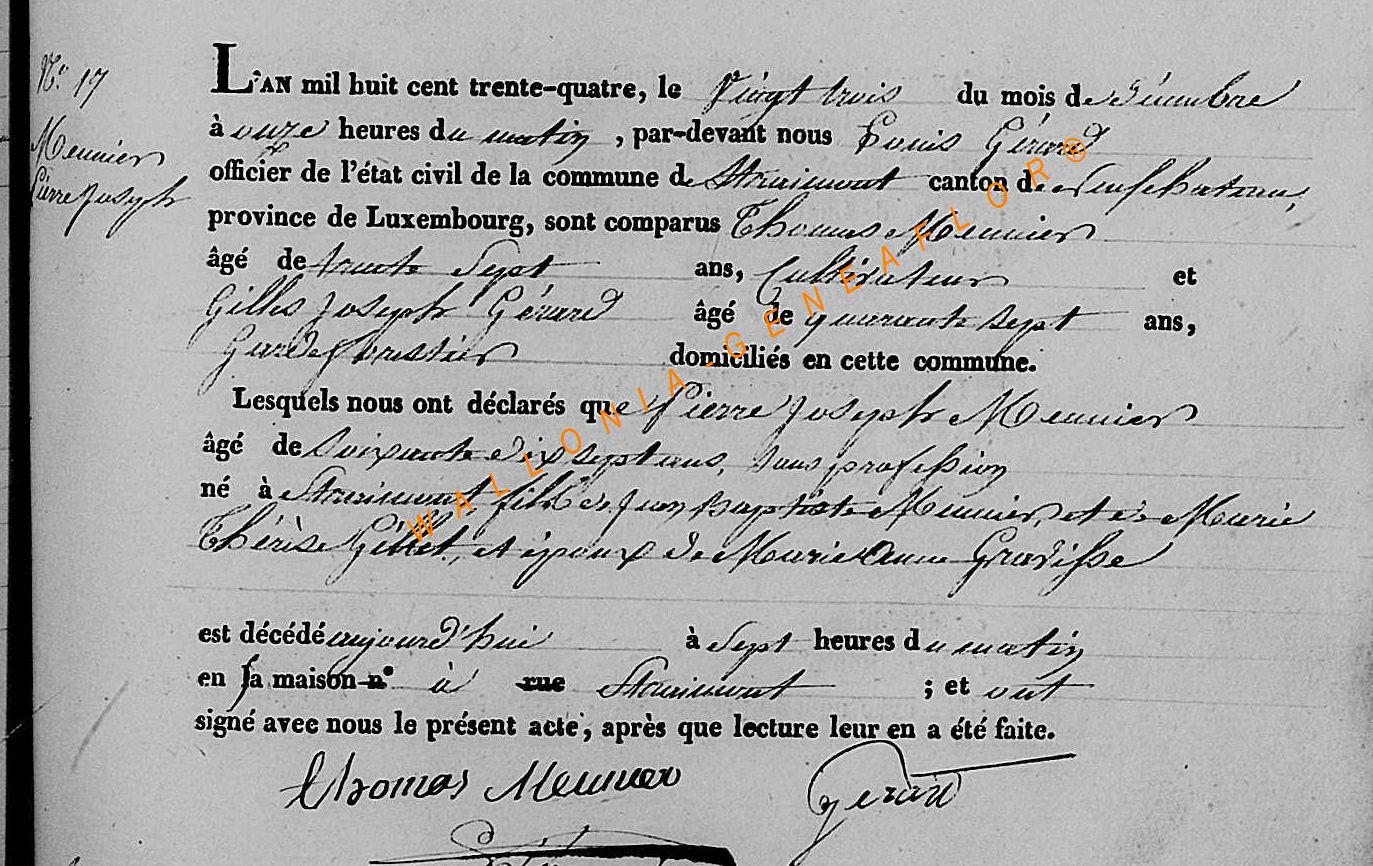 N.° 17
Meunier
Pierre Joseph
L'AN mil huit cent trente-quatre, le Vingt trois du mois de Décembre
à onze heures du matin, par-devant nous Gérard
officier de l'état civil de la commune de Straimont canton de neufchateau,
province de Luxembourg, sont comparus Thomas Meunier
âgé de trente Sept ans, Cultivateur et
Gilles Joseph Gérard âgé de quarante sept ans,
Garde forestier domiciliés en cette commune.
Lesquels nous ont déclarés que Pierre Joseph Meunier
âgé de Soixante dix sept ans, Sans profession
né à Straimont, fils de Jean Baptiste Meunier, et de Marie
Thérèse Gillet, et époux de Marie Anne Gradisse
est décédé aujourd'hui à Sept heures du matin
en sa maison n° à rue Straimont ; et ont
signé avec nous le présent acte, après que lecture leur en a été faite.
Thomas Meunier Gerard
WALLONIA-GENEAFLOR®